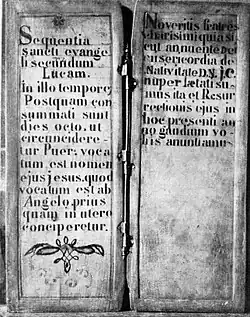 Sequentia
sancti evange
li secundum
Lucam.
in illo tempore
Postquam con
summati sunt
dies octo, ut
circumcidere
tur Puer; voca
tum est nomen
ejus jesus, quod
vocatum est ab
Angelo prius
quam in utero
conciperetur.
Noveritis fratres
charissimi quia si
cut annuente Dei
misericordia de
Nativitate D. N. J. C.
nuper lætati su
mus ita et Resur
rectionis ejus in
hoc presenti an
no gaudium vo
bis anuntiamus